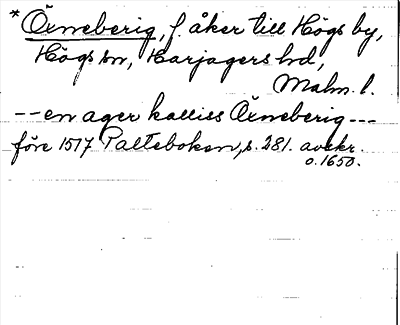 * Öxneberig, f. åker till Högs by,
Högs sn, Harjagers hd,
Malm. l.
-- en ager kalliss Öxneberig ---
före 1517 Palteboken, s. 281. avskr.
o. 1650.